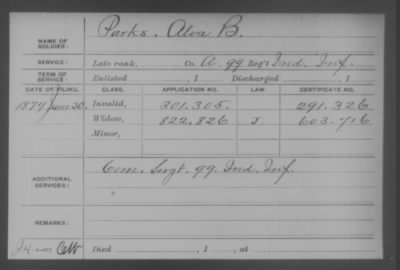 NAME OF SOLDIER: Parks, Alva B.
SERVICE: Late rank, Co. A, 99 Reg't Ind. Inf.
TERM OF SERVICE: Enlisted , 1 Discharged , 1
DATE OF FILING. CLASS. APPLICATION NO. LAW. CERTIFICATE NO.
1879 June 30. Invalid, 301.305. 291.326
Widow, 822.826 603.716
Minor,
ADDITIONAL SERVICES: Com. Sergt. 99. Ind. Inf.
"
REMARKS:
Died , 1 , at